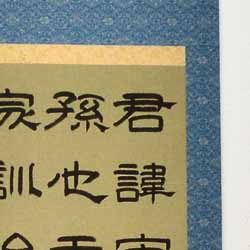 君諱
孫也
家訓